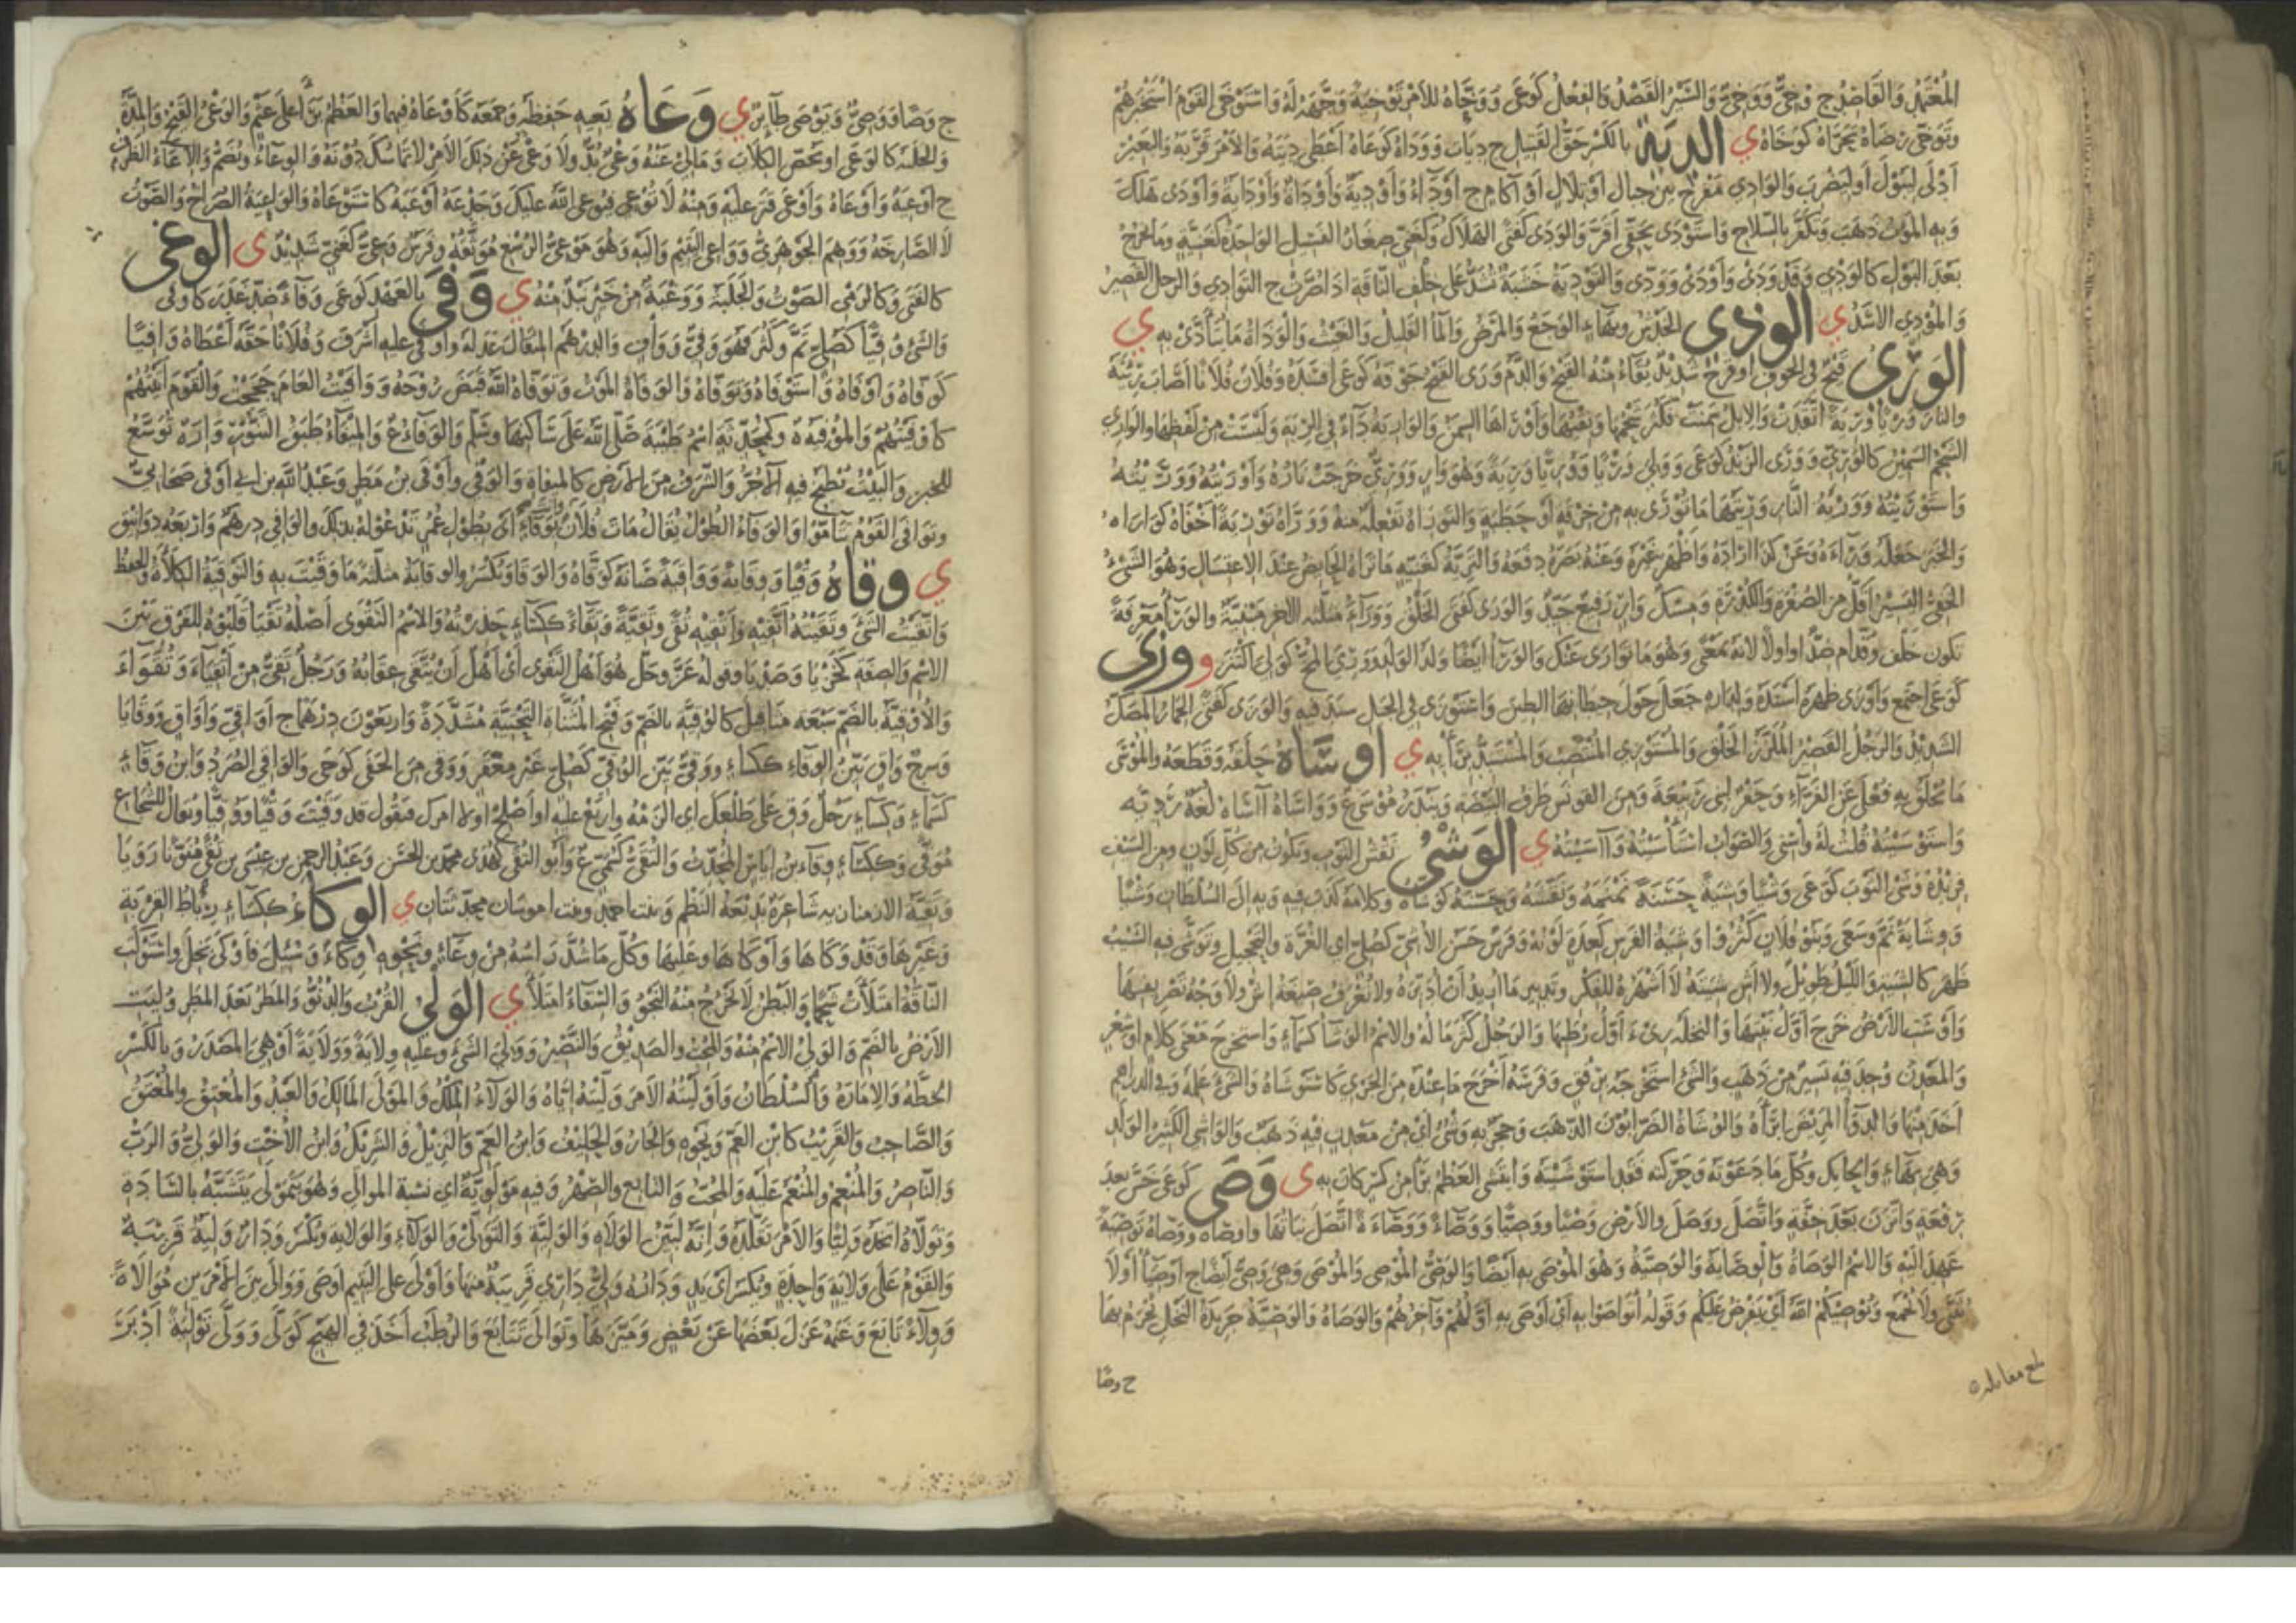 المُعْتَمَدُ وَالقَاصِدُ ج وُخِيٌّ وَوِخِيٌّ وَالسَّيْرُ القَصْدُ وَالفِعْلُ كَوَعَى وَوَخَّاهُ لِلأَمْرِ تَوْخِيَةً وَجَّهَهُ لَهُ وَاسْتَوْخَى القَوْمَ اسْتَخْبَرَهُمْ
وَتَوَخَّى رِضَاهُ تَحَرَّاهُ كَوَخَاهُ ي الدِيَةُ بالكَسْرِ حَقُّ القَتِيلِ ج دِيَاتٌ وَوَدَاهُ كَدَعَاهُ أَعْطَى دِيَتَهُ وَالأَمْرَ قَرَّبَهُ وَالبَعِيْرُ
أَدْلَى لِيَبُوْلَ أَو لِيَضْرِبَ وَالوَادِي مَفْرَجٌ بَيْنَ جِبَالٍ أَوْ تِلَالٍ أَوْ آكَامٍ ج أَوْدَاءٌ وَأَوْدِيَةٌ وَأَوْدَاةٌ وَأَوْدَايَةٌ وَأَوْدَى هَلَكَ
وَبِهِ المَوْتُ ذَهَبَ وَتَكَفَّرَ بِالسِّلَاحِ وَاسْتَوْدَى بِحَقِّي أَقَرَّ وَالوَدَى كَفَتَى الهَلَاكُ وَكَغَنِيّ صِغَارُ الفَسِيْلِ الوَاحِدَةُ كَغَنِيَّةٍ وَمَا يَخْرُجُ
بَعْدَ البَوْلِ كَالوَدْيِ وَقَدْ وَدَى وَأَوْدَى وَوَدَّى وَالتَّوْدِيَةُ خَشَبَةٌ تُشَدُّ عَلَى خِلْفِ النَّاقَةِ اذَا صُرَّتْ ج التَّوَادِي وَالرَّجُلُ القَصِيْرُ
وَالمُوْدِي الأَسَدُ ي الوذى الخَدْشُ وَبِهَاءٍ الوَجَعُ وَالمَرَضُ وَالمَاءُ القَلِيْلُ وَالعَيْبُ وَالوَذَاةُ مَا يُتَأَذَّى بِهِ ي
الوَرْىُ قَيْحٌ فِي الجَوْفِ أَو قَرْحٌ شَدِيْدٌ يُقَاءُ مِنْهُ القَيْحُ وَالدَّمُ وَرَى القَيْحُ جَوْفَهُ كَوَعَى أَفْسَدَهُ وَفُلَانٌ فُلَانًا أَصَابَ رِئَتَهُ
وَالنَّارُ وَرْيًا وَرِيَةً اتَّقَدَتْ وَالإِبِلُ سَمِنَتْ فَكَثُرَ شَحْمُهَا وَنِقْيُهَا وَأَوْرَاهَا السِّمَنُ وَالوَارِيَةُ دَاءٌ فِي الرِّئَةِ وَلَيْسَتْ مِنْ لَفْظِهَا وَالوَارِي
الشَّحْمُ السَّمِيْنُ كَالوَرِيِّ وَوَرَى الزَّنْدُ كَوَعَى وَوَلِيَ وَرْيًا وَوُرِيًّا وَرِيَةً وَهُوَ وَارٍ وَوَرِيٌّ خَرَجَتْ نَارُهُ وَأَوْرَيْتُهُ وَوَرَّيْتُهُ
وَاسْتَوْرَيْتُهُ وَوَرْيَةُ النَّارِ وَرِيَتُهَا مَا تُوْرَى بِهِ مِنْ خِرْقَةٍ أَوْ حَطَبَةٍ وَالتَّوْرَاةُ تَفْعِلَةٌ مِنْهُ وَوَرَّاهُ تَوْرِيَةً أَخْفَاهُ كَوَارَاهُ
وَالخَبَرَ جَعَلَهُ وَرَاءَهُ وَعَنْ كَذَا أَرَادَهُ وَأَظْهَرَ غَيْرَهُ وَعَنْهُ بَصَرَهُ دَفَعَهُ وَالتَّرِيَّةُ كَغَنِيَّةٍ مَا تَرَاهُ الحَائِضُ عِنْدَ الاغْتِسَالِ وَهُوَ الشَّيْءُ
الخَفِيُّ اليَسِيْرُ أَقَلُّ مِنَ الصُّفْرَةِ وَالكُدْرَةِ وَمِسْكٌ وَارٍ رَفِيعٌ جَيِّدٌ وَالوَرَى كَفَتَى الخَلْقُ وَوَرَاءُ مُثَلَّثَةُ الآخِرِ مَبْنِيَّةٌ وَالوَرَاءُ مَعْرِفَةٌ
تَكُوْنُ خَلْفَ وَقُدَّامَ ضِدٌّ أَو لَا لأَنَّهُ بِمَعْنًى وَهُوَ مَا تَوَارَى عَنْكَ وَالوَرَاءُ أَيْضًا وَلَدُ الوَلَدِ وَوَرِيَ المُخُّ كَوَلِيَ اكْتَنَزَ و وزى
كَوَعَى اجْتَمَعَ وَأَوْزَى ظَهْرَهُ أَسْنَدَهُ وَلِدَارِهِ جَعَلَ حَوْلَ حِيْطَانِهَا الطِّيْنَ وَاسْتَوْزَى فِي الجَبَلِ سَنَدَ فِيْهِ وَالوَزَى كَفَتَى الحِمَارُ المِصَكُّ
الشَّدِيْدُ وَالرَّجُلُ القَصِيْرُ المُلَزَّزُ الخَلْقِ وَالمُسْتَوْزِي المُنْتَصِبُ وَالمُسْتَبِدُّ بِرَأْيِهِ ي أوساه حَلَقَهُ وَقَطَعَهُ وَالمُوْسَى
مَا يُحْلَقُ بِهِ فُعْلَى عَنِ الفَرَّاءِ وَحَفْرٌ لِبَنِي رَبِيْعَةَ وَمِنَ القَوْنَسِ طَرَفُ البَيْضَةِ وَبَنْدَرُ مُوْسَى ع وَوَاسَاهُ آسَاهُ لُغَةٌ رَدِيَّةٌ
وَاسْتَوْسَيْتُهُ قُلْتُ لَهُ وَاسِنِي وَالصَّوَابُ اسْتَأْسَيْتُهُ وَآسَيْتُهُ ي الوَشْيُ نَقْشُ الثَّوْبِ وَيَكُوْنُ مِنْ كُلِّ لَوْنٍ وَمِنَ السَّيْفِ
فِرِنْدُهُ وَشَى الثَّوْبَ كَوَعَى وَشْيًا وَشِيَةً حَسَنَةً نَمْنَمَهُ وَنَقَشَهُ وَحَسَّنَهُ كَوَشَّاهُ وَكَلَامَهُ كَذَبَ فِيْهِ وَبِهِ إِلَى السُّلْطَانِ وَشْيًا
وَوِشَايَةً نَمَّ وَسَعَى وَبَنُوْ فُلَانٍ كَثُرُوْا وَشِيَةُ الفَرَسِ كَعِدَةٍ لَوْنُهُ وَفَرَسٌ حَسَنُ الأُشِيِّ كَصُلِيٍّ أَيِ الغُرَّةِ وَالتَّحْجِيْلِ وَتَوَشَّى فِيْهِ الشَّيْبُ
ظَهَرَ كَالشِّيَةِ وَاللَّيْلُ طَوِيْلٌ وَلَا آشِ شِيَتَهُ لَا أَسْهَرُهُ لِلفِكْرِ وَتَدْبِيرِ مَا أُرِيدُ أَنْ أُدَبِّرَهُ وَلَا تُعْرَفُ صِيْغَةُ آشِ وَلَا وَجْهُ تَصْرِيفِهَا
وَأَوْشَتِ الأَرْضُ خَرَجَ أَوَّلُ نَبْتِهَا وَالنَّخْلَةُ رِيءَ أَوَّلُ رُطَبِهَا وَالرَّجُلُ كَثُرَ مَالُهُ وَالاسْمُ الوَشَاءُ كَسَمَاءٍ وَاسْتَخْرَجَ مَعْنَى كَلَامٍ أَو شِعْرٍ
وَالمَعْدِنُ وُجِدَ فِيْهِ يَسِيْرٌ مِنْ ذَهَبٍ وَالشَّيْءَ اسْتَخْرَجَهُ بِرِفْقٍ وَفَرَسَهُ أَخْرَجَ مَا عِنْدَهُ مِنَ الجَرْيِ كَاسْتَوْشَاهُ وَالشَّيْءَ عَلِمَهُ وَفِي الدَّرَاهِمِ
أَخَذَ مِنْهَا وَالدَّوَاءُ المَرِيْضَ أَبْرَأَهُ وَالوُشَاةُ الضَّرَّابُوْنَ الذَّهَبَ وَحَجَرٌ بِهِ وَشْيٌ أَيْ مِنْ مَعْدِنٍ فِيْهِ ذَهَبٌ وَالوَاشِي الكَثِيْرُ الوَلَدِ
وَهِيَ بِهَاءٍ وَالحَائِكُ وَكُلُّ مَا دَعَوْتَهُ وَحَرَّكْتَهُ فَقَدِ اسْتَوْشَيْتَهُ وَائْتَشَى العَظْمُ بَرَأَ مِنْ كَسْرٍ كَانَ بِهِ ي وَصَى كَوَعَى خَسَّ بَعْدَ
رِفْعَةٍ وَاتَّزَنَ بَعْدَ خِفَّةٍ وَاتَّصَلَ وَوَصَلَ وَالأَرْضُ وَصْيًا وَوُصِيًّا وَوَصَاءً وَوَصَاءَةً اتَّصَلَ نَبَاتُهَا وَأَوْصَاهُ وَوَصَّاهُ تَوْصِيَةً
عَهِدَ إِلَيْهِ وَالاسْمُ الوَصَاةُ وَالوِصَايَةُ وَالوَصِيَّةُ وَهُوَ المُوْصَى بِهِ أَيْضًا وَالوَصِيُّ المُوْصِي وَالمُوْصَى وَهِيَ وَصِيٌّ أَيْضًا ج أَوْصِيَاءُ أَوْ لَا
يُثَنَّى وَلَا يُجْمَعُ وَيُوْصِيْكُمُ اللهُ أَيْ يَفْرِضُ عَلَيْكُمْ وَقَوْلُهُ أَتَوَاصَوْا بِهِ أَيْ أَوْصَى بِهِ أَوَّلُهُمْ وَآخِرُهُمْ وَالوَصَاةُ وَالوَصِيَّةُ جَرِيْدَةُ النَّخْلِ يُحْزَمُ بِهَا
بلغ مقابلة
ج وصًا
ج وَصًا وَوَصِيٌّ وَيُوَصَّى طَائِرٌ ي وَعَاهُ يَعِيهِ حَفِظَهُ وَجَمَعَهُ كَأَوْعَاهُ فِيْهِمَا وَالعَظْمُ بَرَأَ عَلَى عَثْمٍ وَالوَعْيُ القَيْحُ وَالمِدَّةُ
وَالجَلَبَةُ كَالوَعَى أَو يَخُصُّ الكِلَابَ وَمَالِي عَنْهُ وَعْيٌ بُدٌّ وَلَا وَعْيَ عَنْ ذلِكَ الأَمْرِ لَا تَمَاسُكَ دُوْنَهُ وَالوِعَاءُ وَيُضَمُّ وَالإِعَاءُ الظَّرْفُ
ج أَوْعِيَةٌ وَأَوْعَاهُ وَأَوْعَى قَتَرَ عَلَيْهِ وَمِنْهُ لَا تُوْعِي فَيُوْعِيَ اللهُ عَلَيْكِ وَجَدْعَهُ أَوْعَبَهُ كَاسْتَوْعَاهُ وَالوَاعِيَةُ الصُّرَاخُ وَالصَّوْتُ
لَا الصَّارِخَةُ وَوَهِمَ الجَوْهَرِيُّ وَوَاعِي اليَتِيْمِ وَالِيْهِ وَهُوَ مَوْعِيُّ الرُّسْغِ مُوَثَّقُهُ وَفَرَسٌ وَعِيٌّ كَغَنِيٍّ شَدِيْدٌ ي الوغى
كَالفَتَى وَكَالرَّمْيِ الصَّوْتُ وَالجَلَبَةُ وَوَغْيَةٌ مِنْ خَيْرٍ نُبَذٌ مِنْهُ ي وَفَى بِالعَهْدِ كَوَعَى وَفَاءً ضِدُّ غَدَرَ كَأَوْفَى
وَالشَّيْءُ وُفِيًّا كَصُلِيٍّ تَمَّ وَكَثُرَ فَهُوَ وَفِيٌّ وَوَافٍ وَالدِّرْهَمُ المِثْقَالَ عَدَلَهُ وَأَوْفَى عَلَيْهِ أَشْرَفَ وَفُلَانًا حَقَّهُ أَعْطَاهُ وَافِيًا
كَوَفَّاهُ وَأَوْفَاهُ وَاسْتَوْفَاهُ وَتَوَفَّاهُ وَالوَفَاةُ المَوْتُ وَتَوَفَّاهُ اللهُ قَبَضَ رُوْحَهُ وَوَافَيْتُ العَامَ حَجَجْتُ وَالقَوْمَ أَتَيْتُهُمْ
كَأَوْفَيْتُهُمْ وَالمُوْفِيَةُ ة وَكَمُحَدِّثَةٍ اسْمُ طَيْبَةَ صَلَّى اللهُ عَلَى سَاكِنِهَا وَسَلَّمَ وَالوَفَاءُ ع وَالمِيْفَاءُ طَبَقُ التَّنُّوْرِ وَإِرَةٌ تُوَسَّعُ
لِلْخُبْزِ وَالبَيْتُ يُطْبَخُ فِيْهِ الآجُرُّ وَالشَّرَفُ مِنَ الأَرْضِ كَالمِيْفَاةِ وَالوَفْيِ وَأَوْفَى بْنُ مَطَرٍ وَعَبْدُ اللهِ بْنُ أَبِي أَوْفَى صَحَابِيٌّ
وَتَوَافَى القَوْمُ تَتَامُّوْا وَالوَفَاءُ الطُّوْلُ يُقَالُ مَاتَ فُلَانٌ وَأَنْتَ بِوَفَاءٍ أَيْ بِطُوْلِ عُمُرٍ تَدْعُوْ لَهُ بِذلِكَ وَالوَافِي دِرْهَمٌ وَأَرْبَعَةُ دَوَانِيْقَ
ي وقاه وَقْيًا وَوِقَايَةً وَوَاقِيَةً صَانَهُ كَوَقَّاهُ وَالوَقَا وَيُكْسَرُ وَالوِقَايَةُ مُثَلَّثَةً مَا وَقَيْتَ بِهِ وَالتَّوْقِيَةُ الكِلَاءَةُ وَالحِفْظُ
وَاتَّقَيْتُ الشَّيْءَ وَتَقَيْتُهُ أَتَّقِيْهِ وَأَتْقِيْهِ تُقًى وَتَقِيَّةً وَتِقَاءً كَكِسَاءٍ حَذِرْتُهُ وَالاسْمُ التَّقْوَى أَصْلُهُ تَقْيَا قَلَبُوْهُ لِلْفَرْقِ بَيْنَ
الاسْمِ وَالصِّفَةِ كَخَزْيَا وَصَدْيَا وَقَوْلُهُ عَزَّ وَجَلَّ هُوَ أَهْلُ التَّقْوَى أَيْ أَهْلٌ أَنْ يُتَّقَى عِقَابُهُ وَرَجُلٌ تَقِيٌّ مِنْ أَتْقِيَاءَ وَتُقَوَاءَ
وَالأُوْقِيَّةُ بِالضَّمِّ سَبْعَةُ مَثَاقِيْلَ كَالوُقِيَّةِ بِالضَّمِّ وَفَتْحِ المُثَنَّاةِ التَّحْتِيَّةِ مُشَدَّدَةً وَأَرْبَعُوْنَ دِرْهَمًا ج أَوَاقِيُّ وَأَوَاقٍ وَوَقَايَا
وَسَرْجٌ وَاقٍ بَيِّنُ الوِقَاءِ كَكِسَاءٍ وَوَقِيٌّ بَيِّنُ الوُقِيِّ كَصُلِيٍّ غَيْرُ مِعْقَرٍ وَوَقَى مِنَ الحَفَى كَوَجَى وَالوَاقِي الصُّرَدُ وَابْنُ وَقَاءٍ
كَسَمَاءٍ وَكِسَاءٍ رَجُلٌ وَقِ عَلَى ظَلْعِكَ أَيِ الزَمْهُ وَارْبَعْ عَلَيْهِ أَو أَصْلِحْ أَوَّلًا أَمْرَكَ فَتَقُولُ قَدْ وَقَيْتُ وَقْيًا وَوُقِيًّا وَيُقَالُ لِلشُّجَاعِ
مُوَقًّى وَكَكِسَاءٍ وِقَاءُ بْنُ إِيَاسٍ المُحَدِّثُ وَالتُّقَيُّ كَسُمَيٍّ ع وَأَبُو التُّقَى كَهُدًى مُحَمَّدُ بْنُ الحَسَنِ وَعَبْدُ الرَّحْمنِ بْنُ عِيسَى بْنِ تُقًى مُنَوَّنًا رَوَيَا
وَتَقِيَّةُ الأَرْمَنَازِيَّةُ شَاعِرَةٌ بَدِيْعَةُ النَّظْمِ وَبِنْتُ أَحْمَدَ وَبِنْتُ أَمُوسَانَ مُحَدِّثَتَانِ ي الوِكَاءُ كَكِسَاءٍ رِبَاطُ القِرْبَةِ
وَغَيْرِهَا وَقَدْ وَكَاهَا وَأَوْكَاهَا وَعَلَيْهَا وَكُلُّ مَا شُدَّ رَأْسُهُ مِنْ وِعَاءٍ وَنَحْوِهِ وِكَاءٌ وَسُئِلَ فَأَوْكَى بَخِلَ وَاسْتَوْكَتِ
النَّاقَةُ امْتَلَأَتْ شَحْمًا وَالبَطْنُ لَا يَخْرُجُ مِنْهُ النَّجْوُ وَالسِّقَاءُ امْتَلَأَ ي الوَلْيُ القُرْبُ وَالدُّنُوُّ وَالمَطَرُ بَعْدَ المَطَرِ وُلِيَتِ
الأَرْضُ بِالضَّمِّ وَالوَلِيُّ الاسْمُ مِنْهُ وَالمُحِبُّ وَالصَّدِيْقُ وَالنَّصِيْرُ وَوَلِيَ الشَّيْءَ وَعَلَيْهِ وِلَايَةً وَوَلَايَةً أَوْ هِيَ المَصْدَرُ وَبِالكَسْرِ
الخُطَّةُ وَالإِمَارَةُ وَالسُّلْطَانُ وَأَوْلَيْتُهُ الأَمْرَ وَلَّيْتُهُ إِيَّاهُ وَالوَلَاءُ المِلْكُ وَالمَوْلَى المَالِكُ وَالعَبْدُ وَالمُعْتِقُ وَالمُعْتَقُ
وَالصَّاحِبُ وَالقَرِيْبُ كَابْنِ العَمِّ وَنَحْوِهِ وَالجَارُ وَالحَلِيْفُ وَابْنُ العَمِّ وَالنَّزِيْلُ وَالشَّرِيْكُ وَابْنُ الأُخْتِ وَالوَلِيُّ وَالرَّبُّ
وَالنَّاصِرُ وَالمُنْعِمُ وَالمُنْعَمُ عَلَيْهِ وَالمُحِبُّ وَالتَّابِعُ وَالصِّهْرُ وَفِيْهِ مَوْلَوِيَّةٌ أَيْ يُشْبِهُ المَوَالِيَ وَهُوَ يَتَمَوْلَى يَتَشَبَّهُ بِالسَّادَةِ
وَتَوَلَّاهُ اتَّخَذَهُ وَلِيًّا وَالأَمْرَ تَقَلَّدَهُ وَإِنَّهُ لَبَيِّنُ الوَلَاءَةِ وَالوَلِيَّةِ وَالتَّوَلِّي وَالوَلَاءِ وَالوَلَايَةِ وَيُكْسَرُ وَدَارٌ وَلْيَةٌ قَرِيْبَةٌ
وَالقَوْمُ عَلَى وَلَايَةٍ وَاحِدَةٍ وَيُكْسَرُ أَيْ يَدٍ وَدَارُهُ وَلْيُ دَارِي قَرِيبَةٌ مِنْهَا وَأَوْلَى عَلَى اليَتِيْمِ أَوْصَى وَوَالَى بَيْنَ الأَمْرَيْنِ مُوَالَاةً
وَوِلَاءً تَابَعَ وَغَنَمَهُ عَزَلَ بَعْضَهَا عَنْ بَعْضٍ وَمَيَّزَهَا وَتَوَالَى تَتَابَعَ وَالرُّطَبُ أَخَذَ فِي الهَيْجِ كَوَلَّى وَوَلَّى تَوْلِيَةً أَدْبَرَ